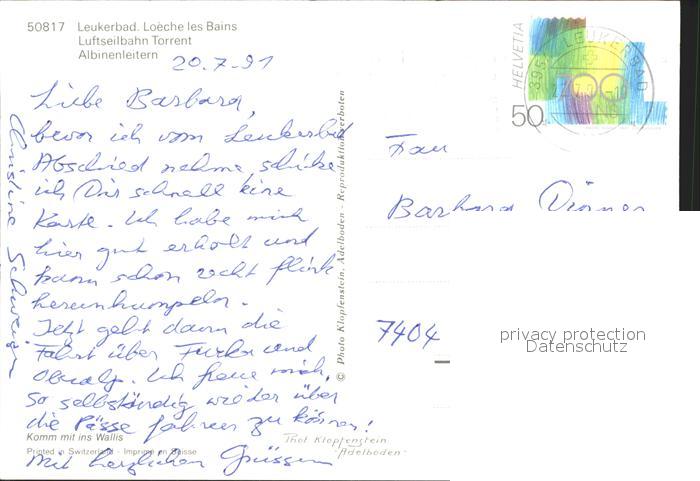 50817 Leukerbad. Loèche les Bains
Luftseilbahn Torrent
Albinenleitern
20.7.91
Liebe Barbara,
bevor ich vom Leukerbad
Abschied nehme, schicke
ich Dir schnell eine
Karte. Ich habe mich
hier gut erholt und
kann schon recht flink
herumhumpeln.
Jetzt geht dann die
Fahrt über Furka und
Oberalp. Ich freue mich,
so selbständig wieder über
die Pässe fahren zu können!
Mit herzlichen Grüssen
Christine
Komm mit ins Wallis
Printed in Switzerland - Imprimé en Suisse
© Photo Klopfenstein, Adelboden - Reproduktion verboten
Phot Klopfenstein
Adelboden
HELVETIA
50
LEUKERBAD
Frau
Barbara
7404
privacy protection
Datenschutz